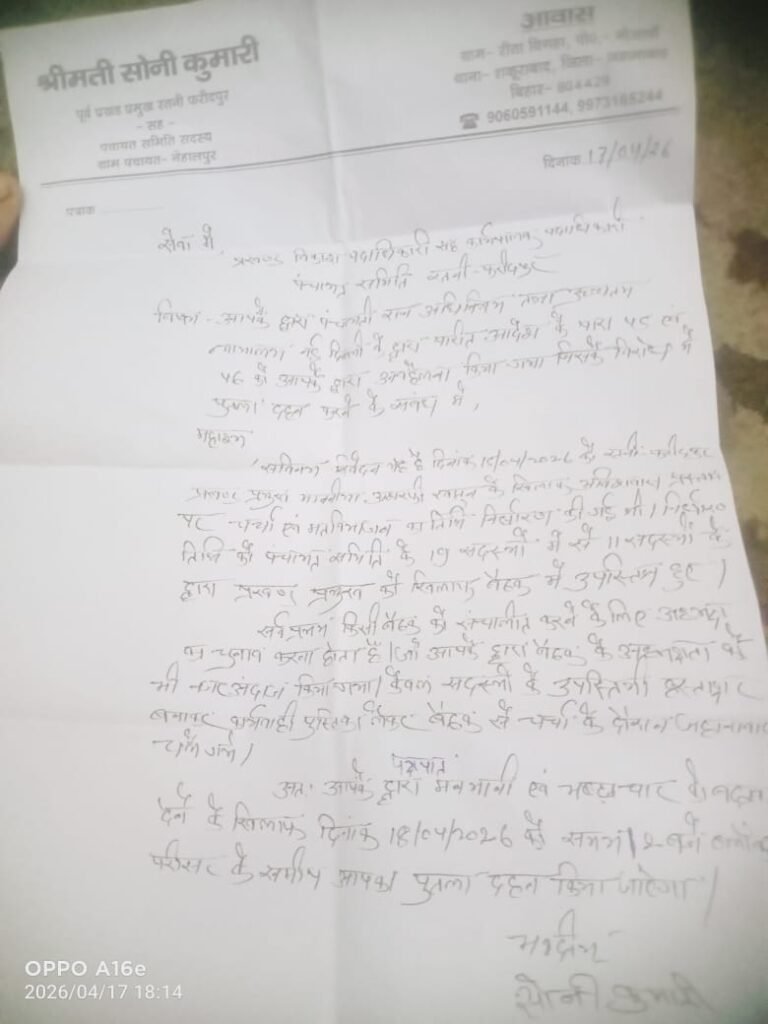 श्रीमती सोनी कुमारी
पूर्व प्रखंड प्रमुख रतनी फरीदपुर
- सह -
पंचायत समिति सदस्य
ग्राम पंचायत- नेहालपुर
आवास
ग्राम- बिगहा, पो०-
थाना- शकूराबाद, जिला- जहानाबाद
बिहार- 804429
☎ 9060591144, 9973165244
पत्रांक
दिनांक 17/04/26
सेवा में
प्रखण्ड विकास पदाधिकारी सह कार्यपालक पदाधिकारी
पंचायत समिति रतनी फरीदपुर
विषय - आपके द्वारा पंचायती राज अधिनियम तथा उच्चतम
न्यायालय नई दिल्ली के द्वारा पारित आदेश के धारा एवं
46 को आपके द्वारा अवहेलना किया गया जिसके विरोध में
पुतला दहन करने के संबंध में,
महाशय
सविनय निवेदन यह है दिनांक 15/04/2026 को रतनी फरीदपुर
प्रखण्ड प्रमुख माननीया खातुन के खिलाफ अविश्वास प्रस्ताव
पर चर्चा एवं मतविभाजन का तिथि निर्धारण की गई थी। निर्धारण
तिथि को पंचायत समिति के 19 सदस्यों में से 11 सदस्यों के
द्वारा प्रखण्ड प्रमुख को खिलाफ बैठक में उपस्तिथ हुए।
सर्वप्रथम किसी बैठक को संचालीत करने के लिए अध्यक्ष
का चुनाव करना होता है। जो आपके द्वारा बैठक के अध्यक्षता को
भी नजरअंदाज किया गया। केवल सदस्यों के उपस्तिथी हस्ताक्षर
बनाकर कार्यवाही पुस्तिका लेकर बैठक से चर्चा के दौरान जहानाबाद
चले गये।
अतः आपके द्वारा पक्षपात मनमानी एवं भ्रष्टाचार के बढ़ावा
देने के खिलाफ दिनांक 18/04/2026 को समय 12 बजे
परीसर के समीप आपका पुतला दहन किया जाएगा।
भवदीय
सोनी कुमारी
OPPO A16e
2026/04/17 18:14